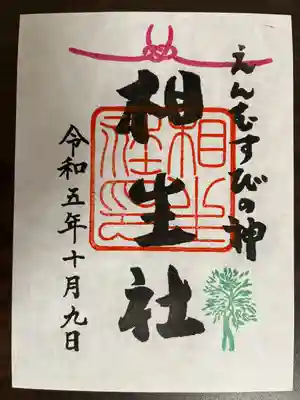 えんむすびの神
相生社
令和五年十月九日